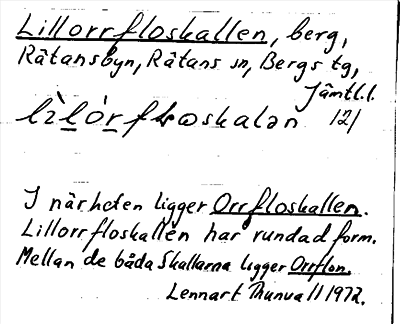 Lillorrfloskallen, berg,
Rätansbyn, Rätans sn, Bergs tg,
Jämtl.l.
lìlórfloskalən 121
I närheten ligger Orrfloskallen.
Lillorrfloskallen har rundad form.
Mellan de båda Skallarna ligger Orrflon.
Lennart Thunvall 1972.